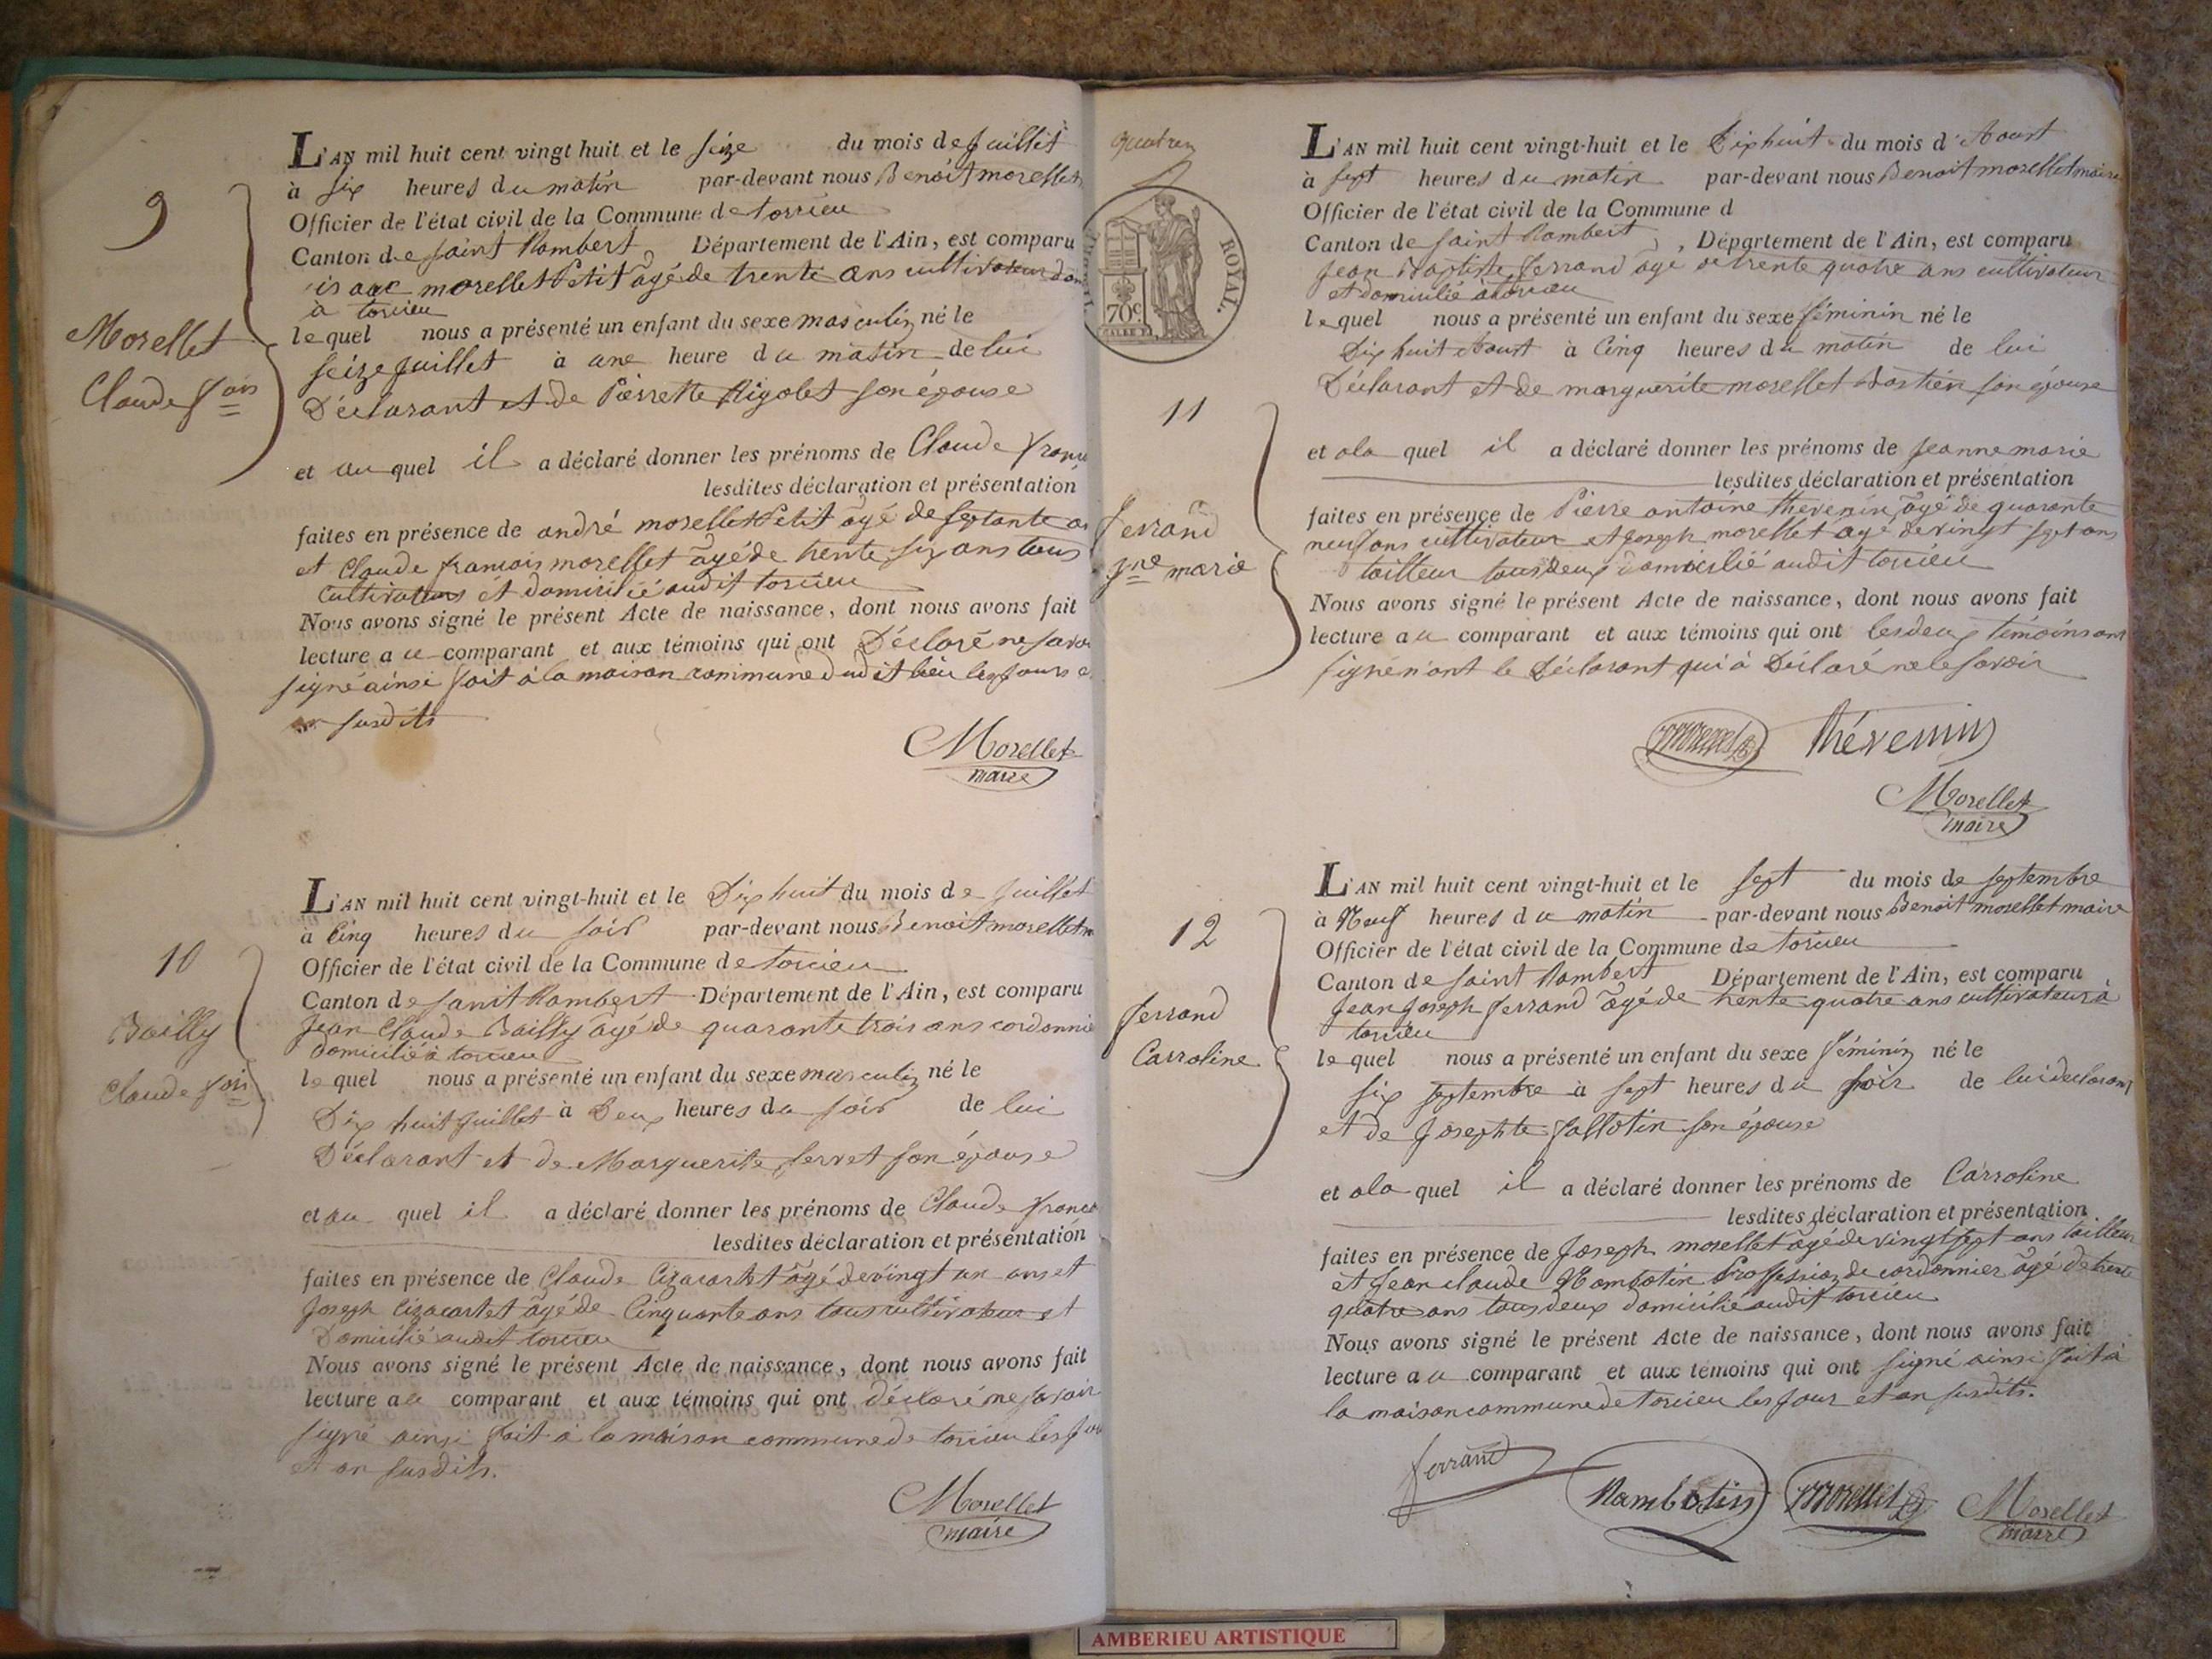 9
Morellet
Claude fois
L'AN mil huit cent vingt huit et le seize du mois de Juillet
à six heures du matin par-devant nous Benoit morellet
Officier de l'état civil de la Commune de torcieu
Canton de saint Rambert Département de l'Ain, est comparu
isaac morellet Petit âgé de trente ans cultivateur dom
à torcieu
lequel nous a présenté un enfant du sexe masculin né le
seize Juillet à une heure du matin de lui
Déclarant et de Pierrette Rigolet son épouse
et au quel il a déclaré donner les prénoms de Claude franc
lesdites déclaration et présentation
faites en présence de andré morellet Petit âgé de septante a
et Claude francois morellet âgé de trente six ans tous
Cultivateurs et domicilié audit torcieu
Nous avons signé le présent Acte de naissance, dont nous avons fait
lecture au comparant et aux témoins qui ont Déclaré ne savo
signé ainsi fait à la maison commune dudit lieu les jours e
an susdits
Morellet
maire
10
Bailly
Claude fois
L'AN mil huit cent vingt-huit et le Dix huit du mois de Juillet
à Cinq heures du soir par-devant nous Benoit morellet m
Officier de l'état civil de la Commune de torcieu
Canton de sanit Rambert Département de l'Ain, est comparu
Jean Claude Bailly âgé de quarante trois ans cordonnie
domicilié à torcieu
lequel nous a présenté un enfant du sexe masculin né le
Dix huit Juillet à Deux heures du soir de lui
Déclarant et de Marguerite servet son épouse
et au quel il a déclaré donner les prénoms de Claude franco
lesdites déclaration et présentation
faites en présence de Claude Cizacartet âgé de vingt un ans et
Joseph Cizacartet âgé de Cinquante ans tous cultivateur et
Domicilié audit torcieu
Nous avons signé le présent Acte de naissance, dont nous avons fait
lecture au comparant et aux témoins qui ont déclaré ne savoir
signé ainsi fait à la maison commune de torcieu les Jou
et an susdits.
Morellet
maire
ROYAL.
70c
11
ferrand
Jne marie
L'AN mil huit cent vingt-huit et le Dix huit du mois d'Aoust
à sept heures du matin par-devant nous Benoit morellet maire
Officier de l'état civil de la Commune d
Canton de saint Rambert, Département de l'Ain, est comparu
Jean Baptiste ferrand agé de trente quatre ans cultivateur
et domicilié à torcieu
lequel nous a présenté un enfant du sexe féminin né le
Dix huit Aoust à Cinq heures du matin de lui
Déclarant et de marguerite morellet Bastien son épouse
et ala quel il a déclaré donner les prénoms de Jeanne marie
lesdites déclaration et présentation
faites en présence de Pierre antoine thevenin âgé de quarante
neuf ans cultivateur et Joseph morellet âgé de vingt sept ans
tailleur tous deux domicilié audit torcieu
Nous avons signé le présent Acte de naissance, dont nous avons fait
lecture au comparant et aux témoins qui ont les deux témoins ont
signé n'ont le Déclarant qui à Déclaré ne le savoir
morellet Thévenin
Morellet
maire
12
ferrand
Carroline
L'AN mil huit cent vingt-huit et le sept du mois de septembre
à Neuf heures du matin par-devant nous Benoit morellet maire
Officier de l'état civil de la Commune de torcieu
Canton de saint Rambert Département de l'Ain, est comparu
Jean Joseph ferrand âgé de trente quatre ans cultivateur à
torcieu
lequel nous a présenté un enfant du sexe féminin né le
six septembre à sept heures du soir de lui declarant
et de Josephte sallotin son épouse
et ala quel il a déclaré donner les prénoms de Carroline
lesdites déclaration et présentation
faites en présence de Joseph morellet âgé de vingt sept ans tailleur
et Jean claude Rambotin Proffession de cordonnier âgé de trente
quatre ans tous deux domicilié audit torcieu
Nous avons signé le présent Acte de naissance, dont nous avons fait
lecture au comparant et aux témoins qui ont signé ainsi fait à
la maison commune de torcieu les jour et an susdits.
ferrand Rambotin morellet Morellet
maire
AMBERIEU ARTISTIQUE